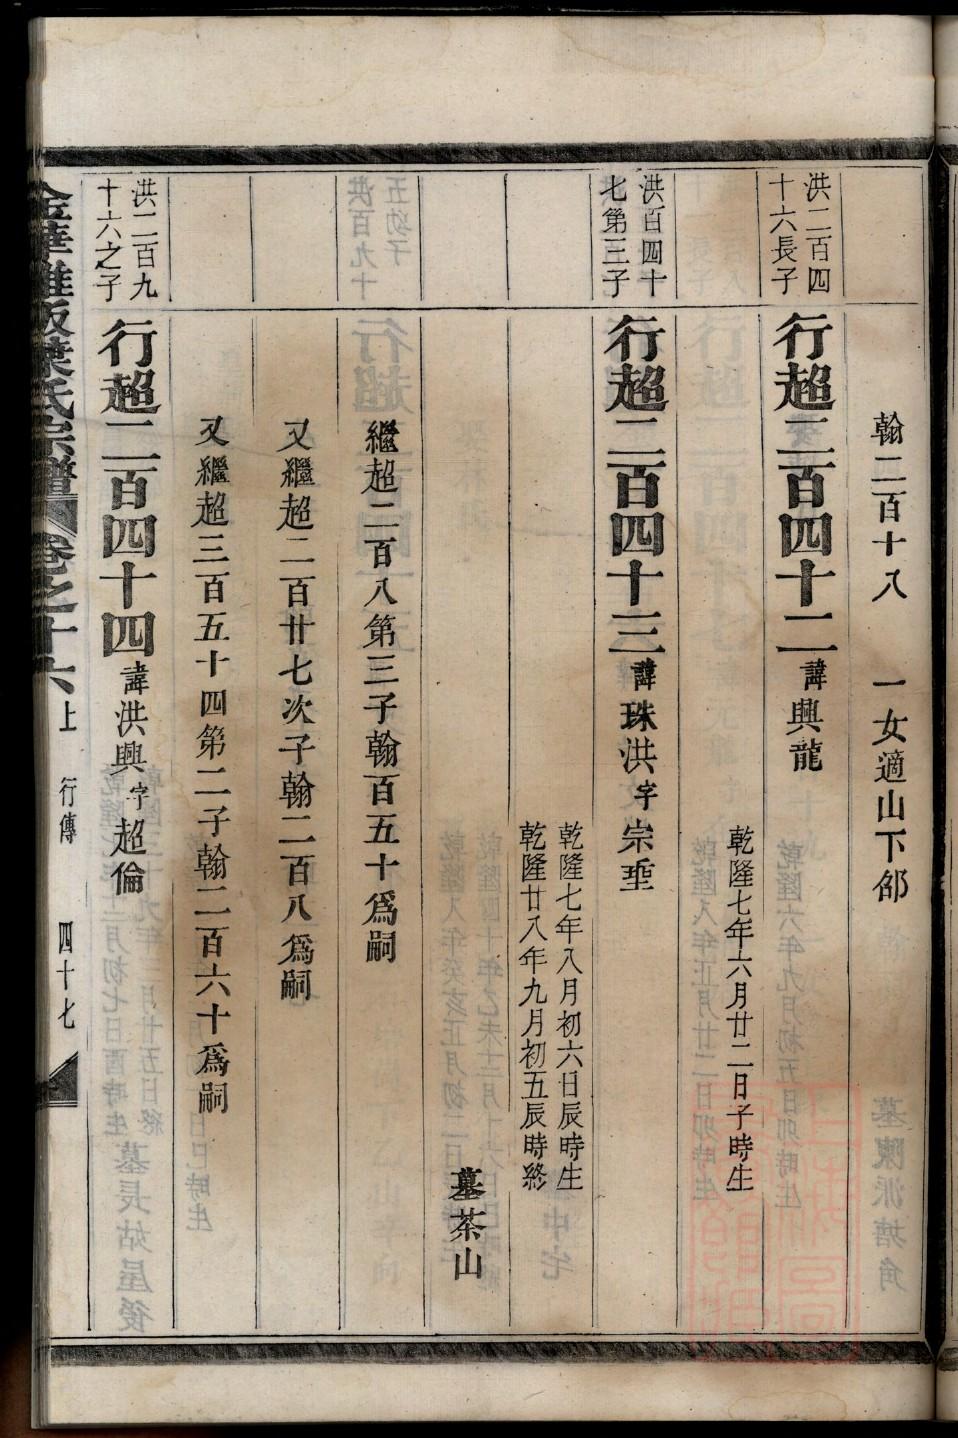 翰二百十八　一女適山下邵
洪二百四
十六長子
行超二百四十二諱興龍
乾隆七年六月廿二日子時生
洪百四十
七第三子
行超二百四十三諱珠洪字宗垂
乾隆七年八月初六日辰時生
乾隆廿八年九月初五辰時終
墓茶山
繼超二百八第三子翰百五十爲嗣
又繼超二百廿七次子翰二百八爲嗣
又繼超三百五十四第二子翰二百六十爲嗣
洪二百九
十六之子
行超二百四十四諱洪興字超倫
金華雅畈葉氏宗譜　卷之十六上　行傳　四十七